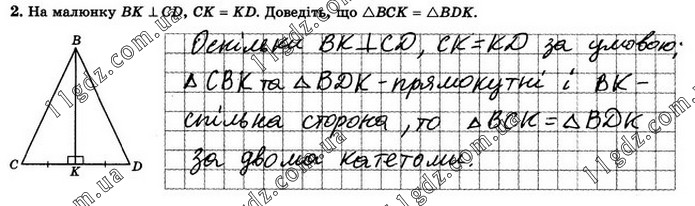 2. На малюнку BK ⊥ CD, CK = KD. Доведіть, що △BCK = △BDK.
B
C K D
Оскільки BK⊥CD, CK=KD за умовою;
△CBK та △BDK - прямокутні і BK -
спільна сторона, то △BCK = △BDK
за двома катетами.
11gdz.com.ua
11gdz.com.ua
11gdz.com.ua
11gdz.com.ua